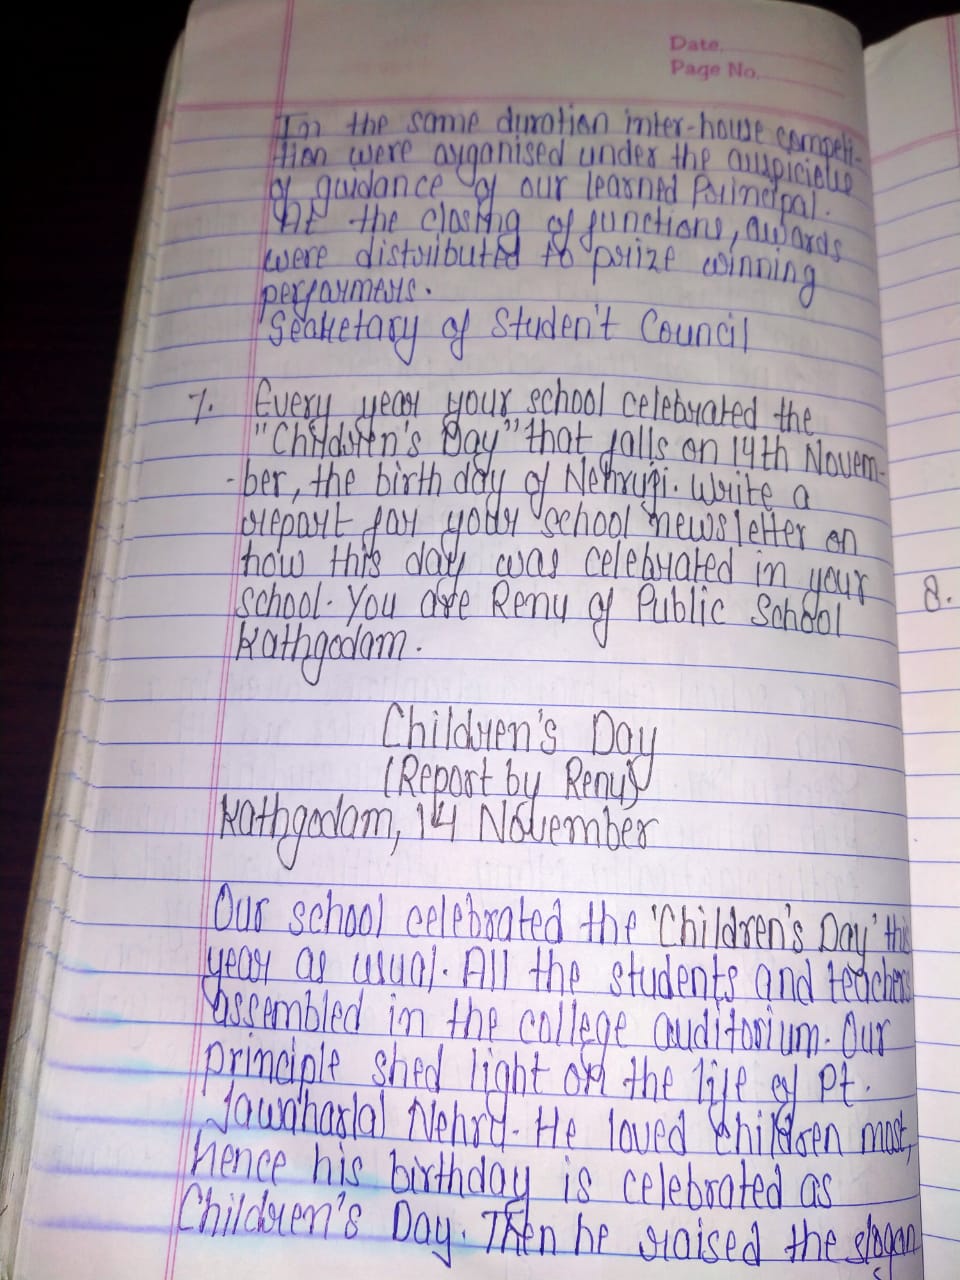 Date.
Page No.
In the same duration inter-house competi-
tion were organised under the auspicious
of guidance of our learned Principal.
At the closing of functions, awards
were distributed to prize winning
performers.
Secretary of Studen't Council
7. Every year your school celebrated the
"Children's Day" that falls on 14th Novem-
-ber, the birth day of Nehruji. Write a
report for your school newsletter on
how this day was celebrated in your
school. You are Renu of Public School
Kathgodam.
8.
Children's Day
(Report by Renu)
Kathgodam, 14 November
Our school celebrated the 'Children's Day' this
year as usual. All the students and teachers
assembled in the college auditorium. Our
principle shed light on the life of Pt.
Jawaharlal Nehru. He loved children most,
hence his birthday is celebrated as
Children's Day. Then he raised the slogan